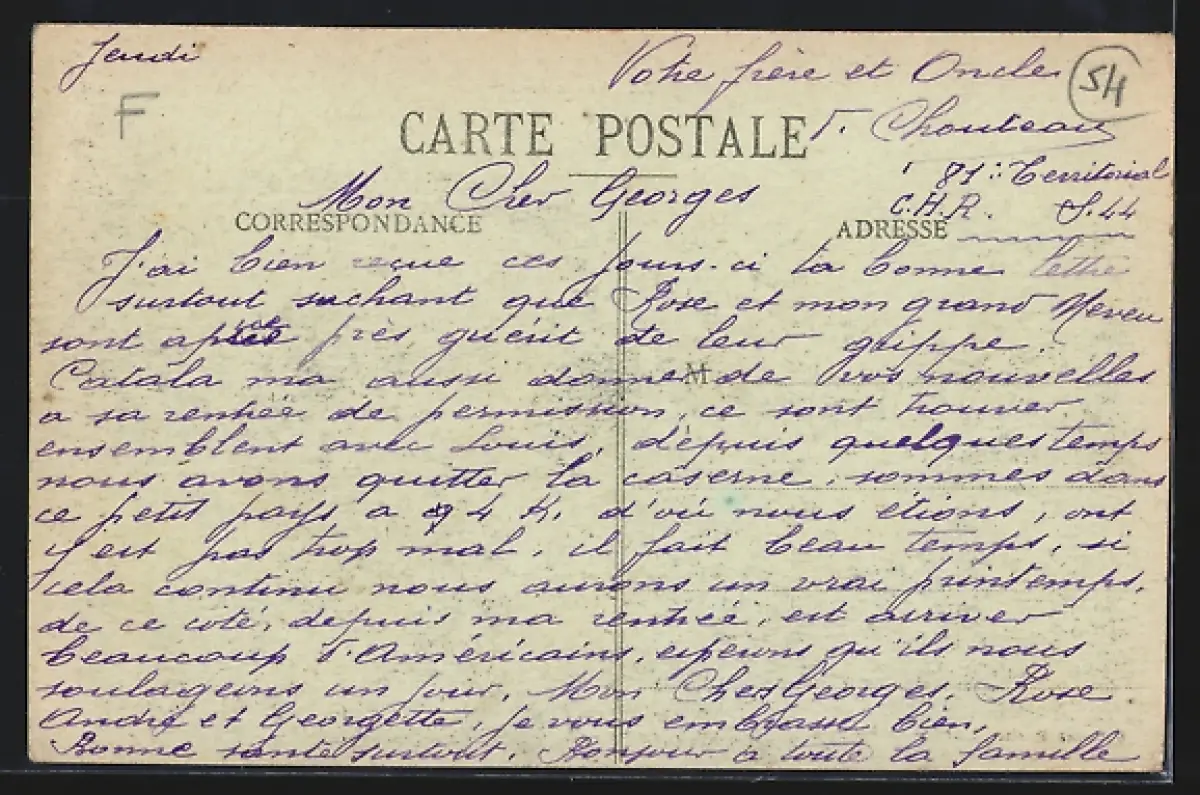 Jeudi
Votre frère et Oncle
54
F
CARTE POSTALE
F. Chouteau
81e Territorial
Mon Cher Georges
C.H.R. S.44
CORRESPONDANCE
ADRESSE
J'ai bien reçue ces jours-ci ta bonne lettre
surtout sachant que Rose et mon grand Neveu
sont à près guérit de leur grippe.
Catala ma aussi donner de vos nouvelles
a sa rentrée de permission, ce sont trouver
ensemblent avec Louis, dépuis quelques temps
nous avons quitter la caserne, sommes dans
ce petit pays a 4 K. d'où nous étions, ont
y est pas trop mal, il fait beau temps, si
cela continu nous aurons un vrai printemps,
de ce coté, depuis ma rentrée, est arriver
beaucoup d'Américains, esperons qu'ils nous
soulagerons un jour. Mon Cher Georges, Rose
André et Georgette, je vous embrasse bien,
Bonne santé surtout. Bonjour a toute la famille